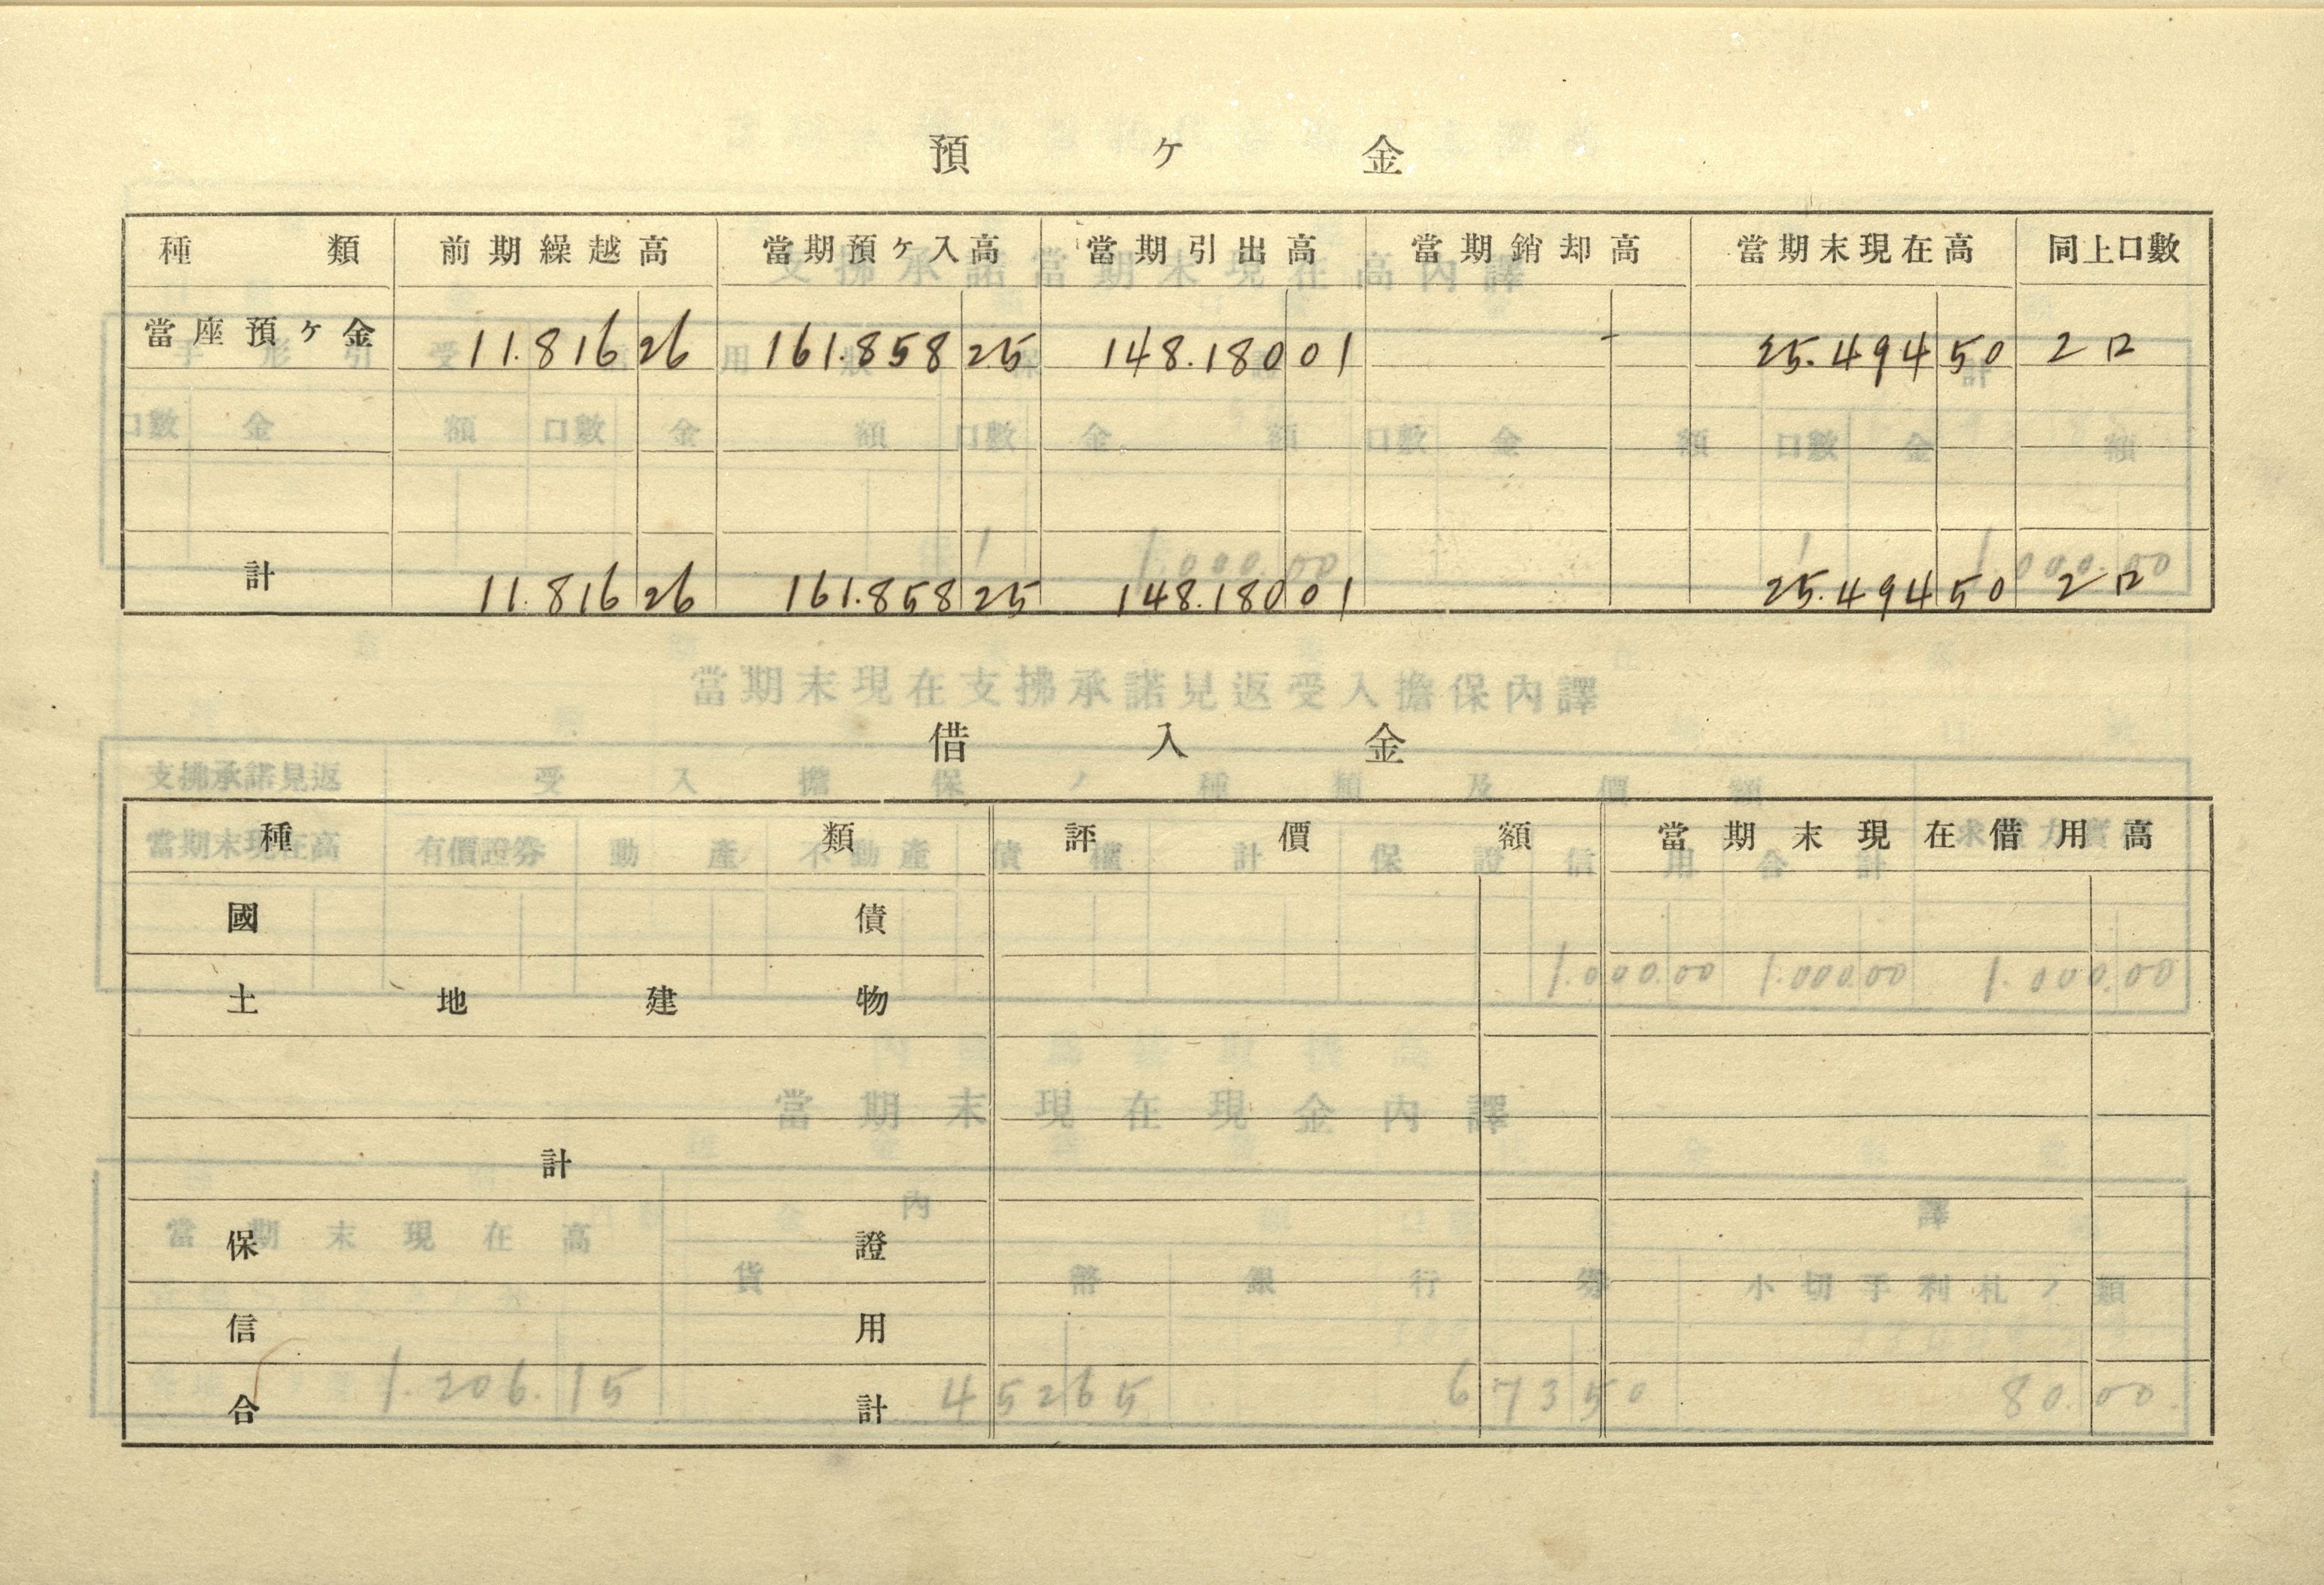 預ケ金
種類 前期繰越高 當期預ケ入高 當期引出高 當期銷却高 當期末現在高 同上口數
當座預ケ金 11.816 26 161.858 25 148.180 01 - 25.494 50 2口
計 11.816 26 161.858 25 148.180 01 25.494 50 2口
借入金
種類 評價額 當期末現在借用高
國債
土地建物
計
保證
信用
合計